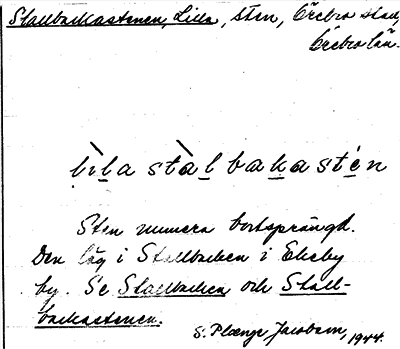 Stallbackastenen, Lilla, sten, Örebro stad,
Örebro län.
lìla stàlbakastén
Sten numera bortsprängd.
Den låg i Stallbacken i Ekeby
by. Se Stallbacken och Stall-
backastenen.
S. Jacobson, 1944.